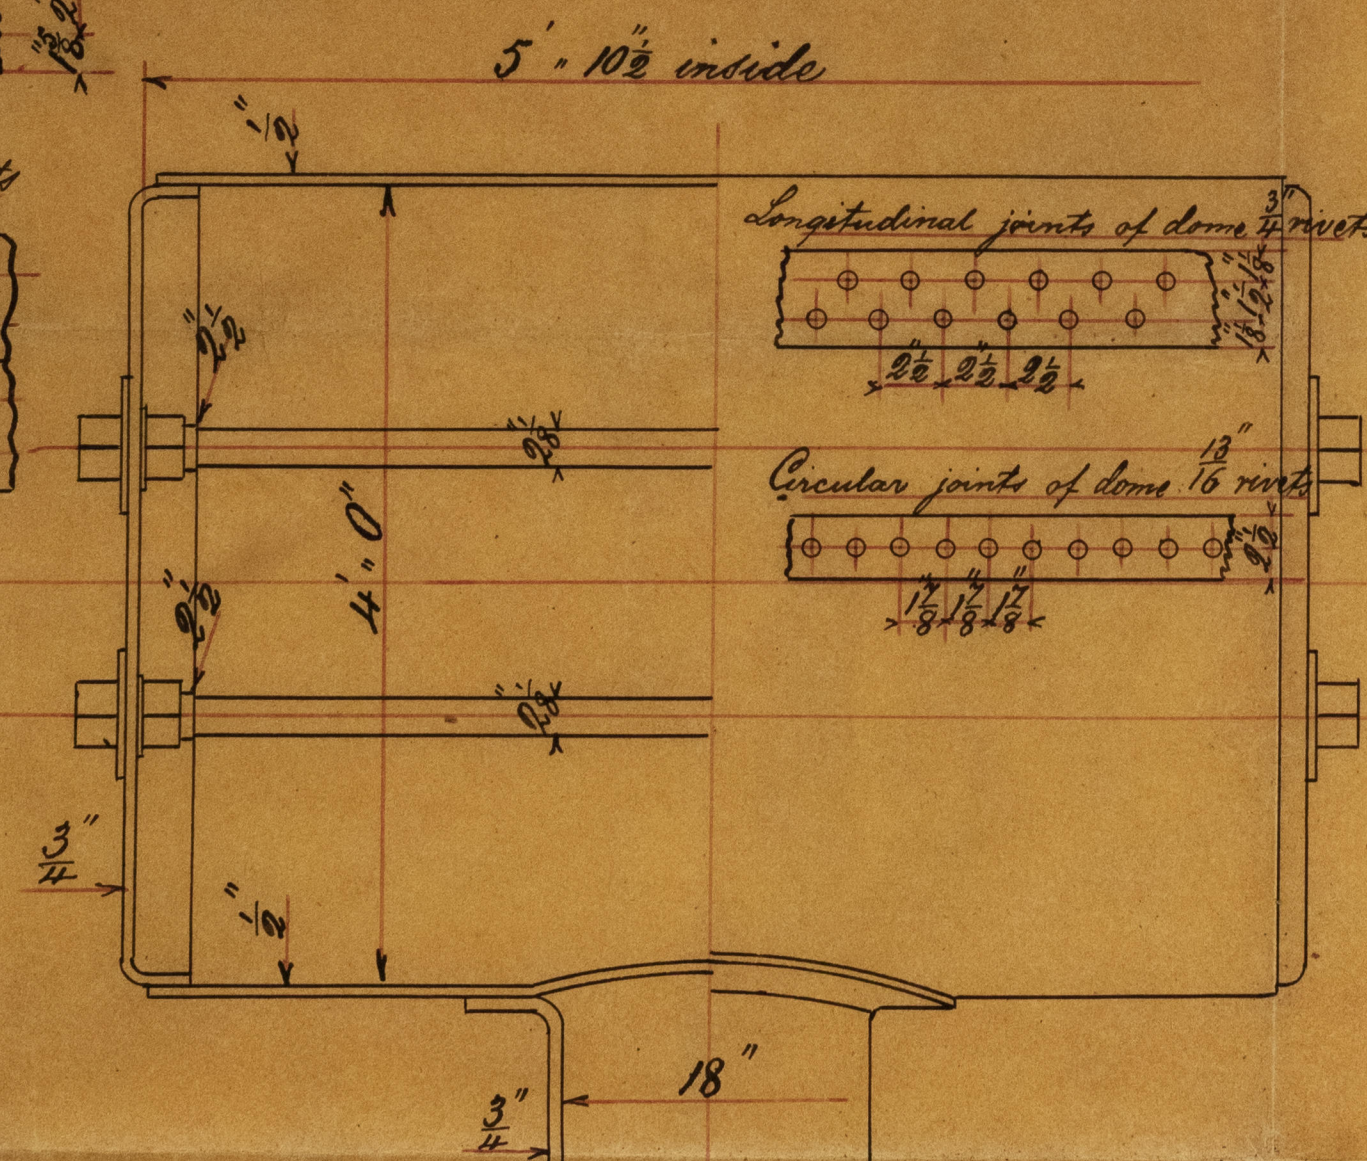 5' " 10 1/2" inside
1/2"
Longitudinal joints of dome 3/4" rivets
1 1/8"
1 1/2"
1 1/8"
2 1/2"
2 1/2" 2 1/2" 2 1/2
2 1/8"
Circular joints of dome 13/16" rivets
2 1/2"
4' " 0"
1 7/8" 1 7/8" 1 7/8"
2 1/2"
2 1/8"
3/4"
1/2"
18"
3/4"